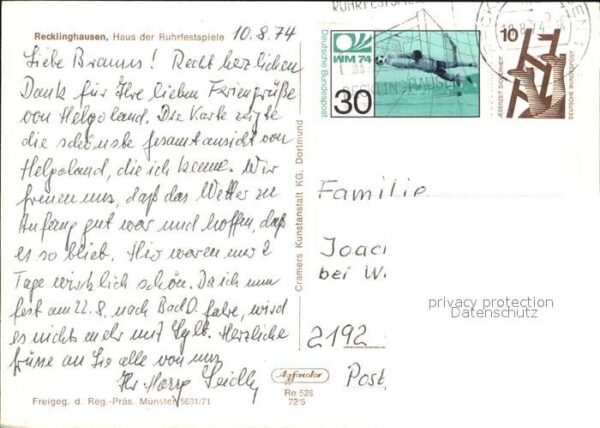 Recklinghausen, Haus der Ruhrfestspiele 10.8.74
Liebe Brauns! Recht herzlichen
Dank für Ihre lieben Feriengrüße
von Helgoland. Die Karte zeigte
die schönste Gesamtansicht von
Helgoland, die ich kenne. Wir
freuen uns, daß das Wetter zu
Anfang gut war und hoffen, daß
es so blieb. Hier waren nur 2
Tage wirklich schön. Da ich nun
fest am 22.8. nach Bad O. fahre, wird
es nichts mehr mit Sylt. Herzliche
Grüsse an Sie alle von uns
Ihr
Freigeg. d. Reg.-Präs. Münster 5631/71
Cramers Kunstanstalt KG, Dortmund
Agfacolor
Re 526
72/5
RUHRFESTSPIEL
RECKLINGHAUSEN
Deutsche Bundespost
WM 74
30
10
JEDERZEIT SICHERHEIT
DEUTSCHE BUNDESPOST
Familie
Joac
bei W
2192
Post
privacy protection
Datenschutz